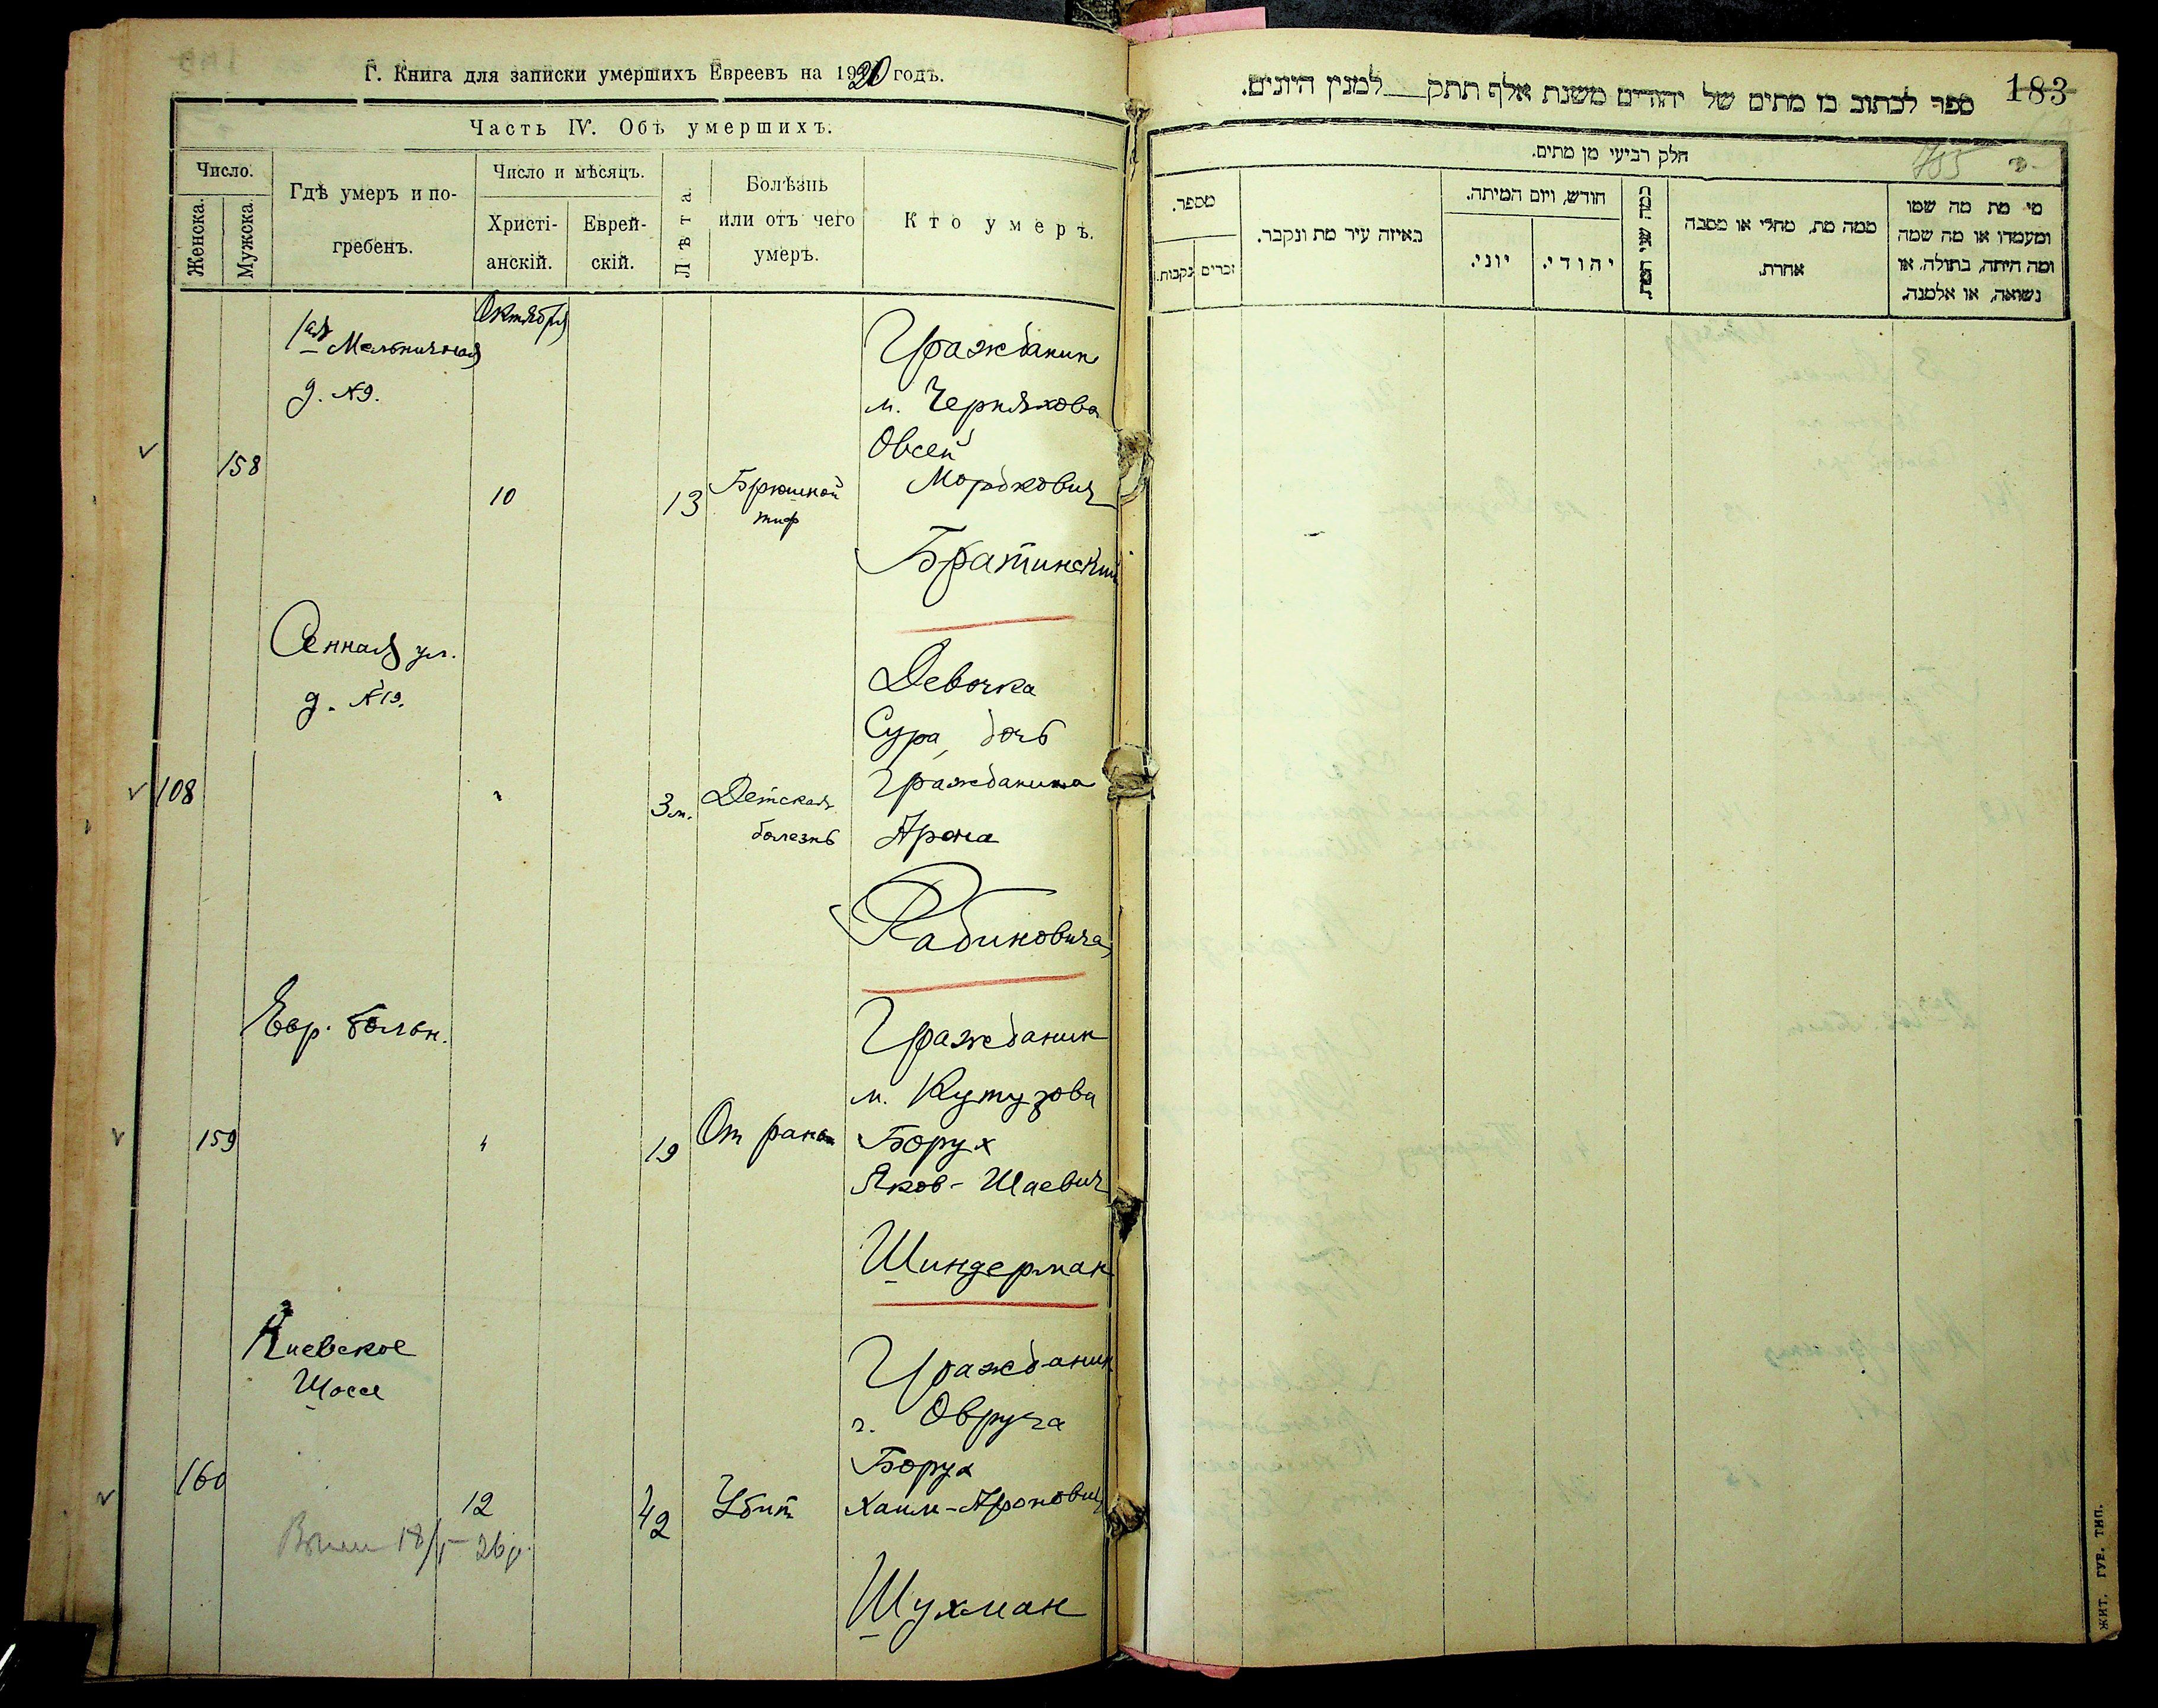 Г. Книга для записки умершихъ Евреевъ на 1920 годъ.
Часть IV. Объ умершихъ.
Число.
Женска.
Мужска.
Гдѣ умеръ и по-
гребенъ.
Число и мѣсяцъ.
Христі-
анскій.
Еврей-
скій.
Лѣта.
Болѣзнь
или отъ чего
умеръ.
Кто умеръ.
Октября
1ая Мельничная
д. №9.
158
10
13
Брюшной
тиф
Гражданин
м. Черняхова
Овсей
Мордкович
Братинский
Сенная ул.
д. №19.
108
"
3 м.
Детская
болезнь
Девочка
Сура, дочь
Гражданина
Арона
Рабиновича
Евр. больн.
159
"
19
От раны
Гражданин
м. Кутузова
Борух
Яков-Шаевич
Шиндерман
Киевское
Шоссе
160
12
42
Убит
Гражданин
г. Овруча
Борух
Хаим-Аронович
Шухман
18/V-26г.
ספר לכתוב בו מתים של יהודים משנת אלף תתק למנין היונים.
183
חלק רביעי מן מתים.
185
מספר.
נקבות.
זכרים
באיזה עיר מת ונקבר.
חודש, ויום המיתה.
יוני.
יהודי.
כמה שני המת
ממה מת, מחלי או מסבה
אחרת.
מי מת מה שמו
ומעמדו או מה שמה
ומה היתה, בתולה, או
נשואה, או אלמנה.
ЖИТ. ГУБ. ТИП.